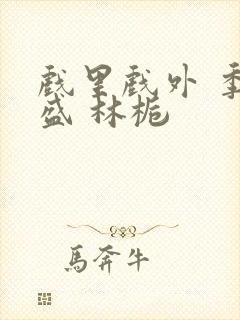 戲里戲外 季
盛 林梔
馬奔牛